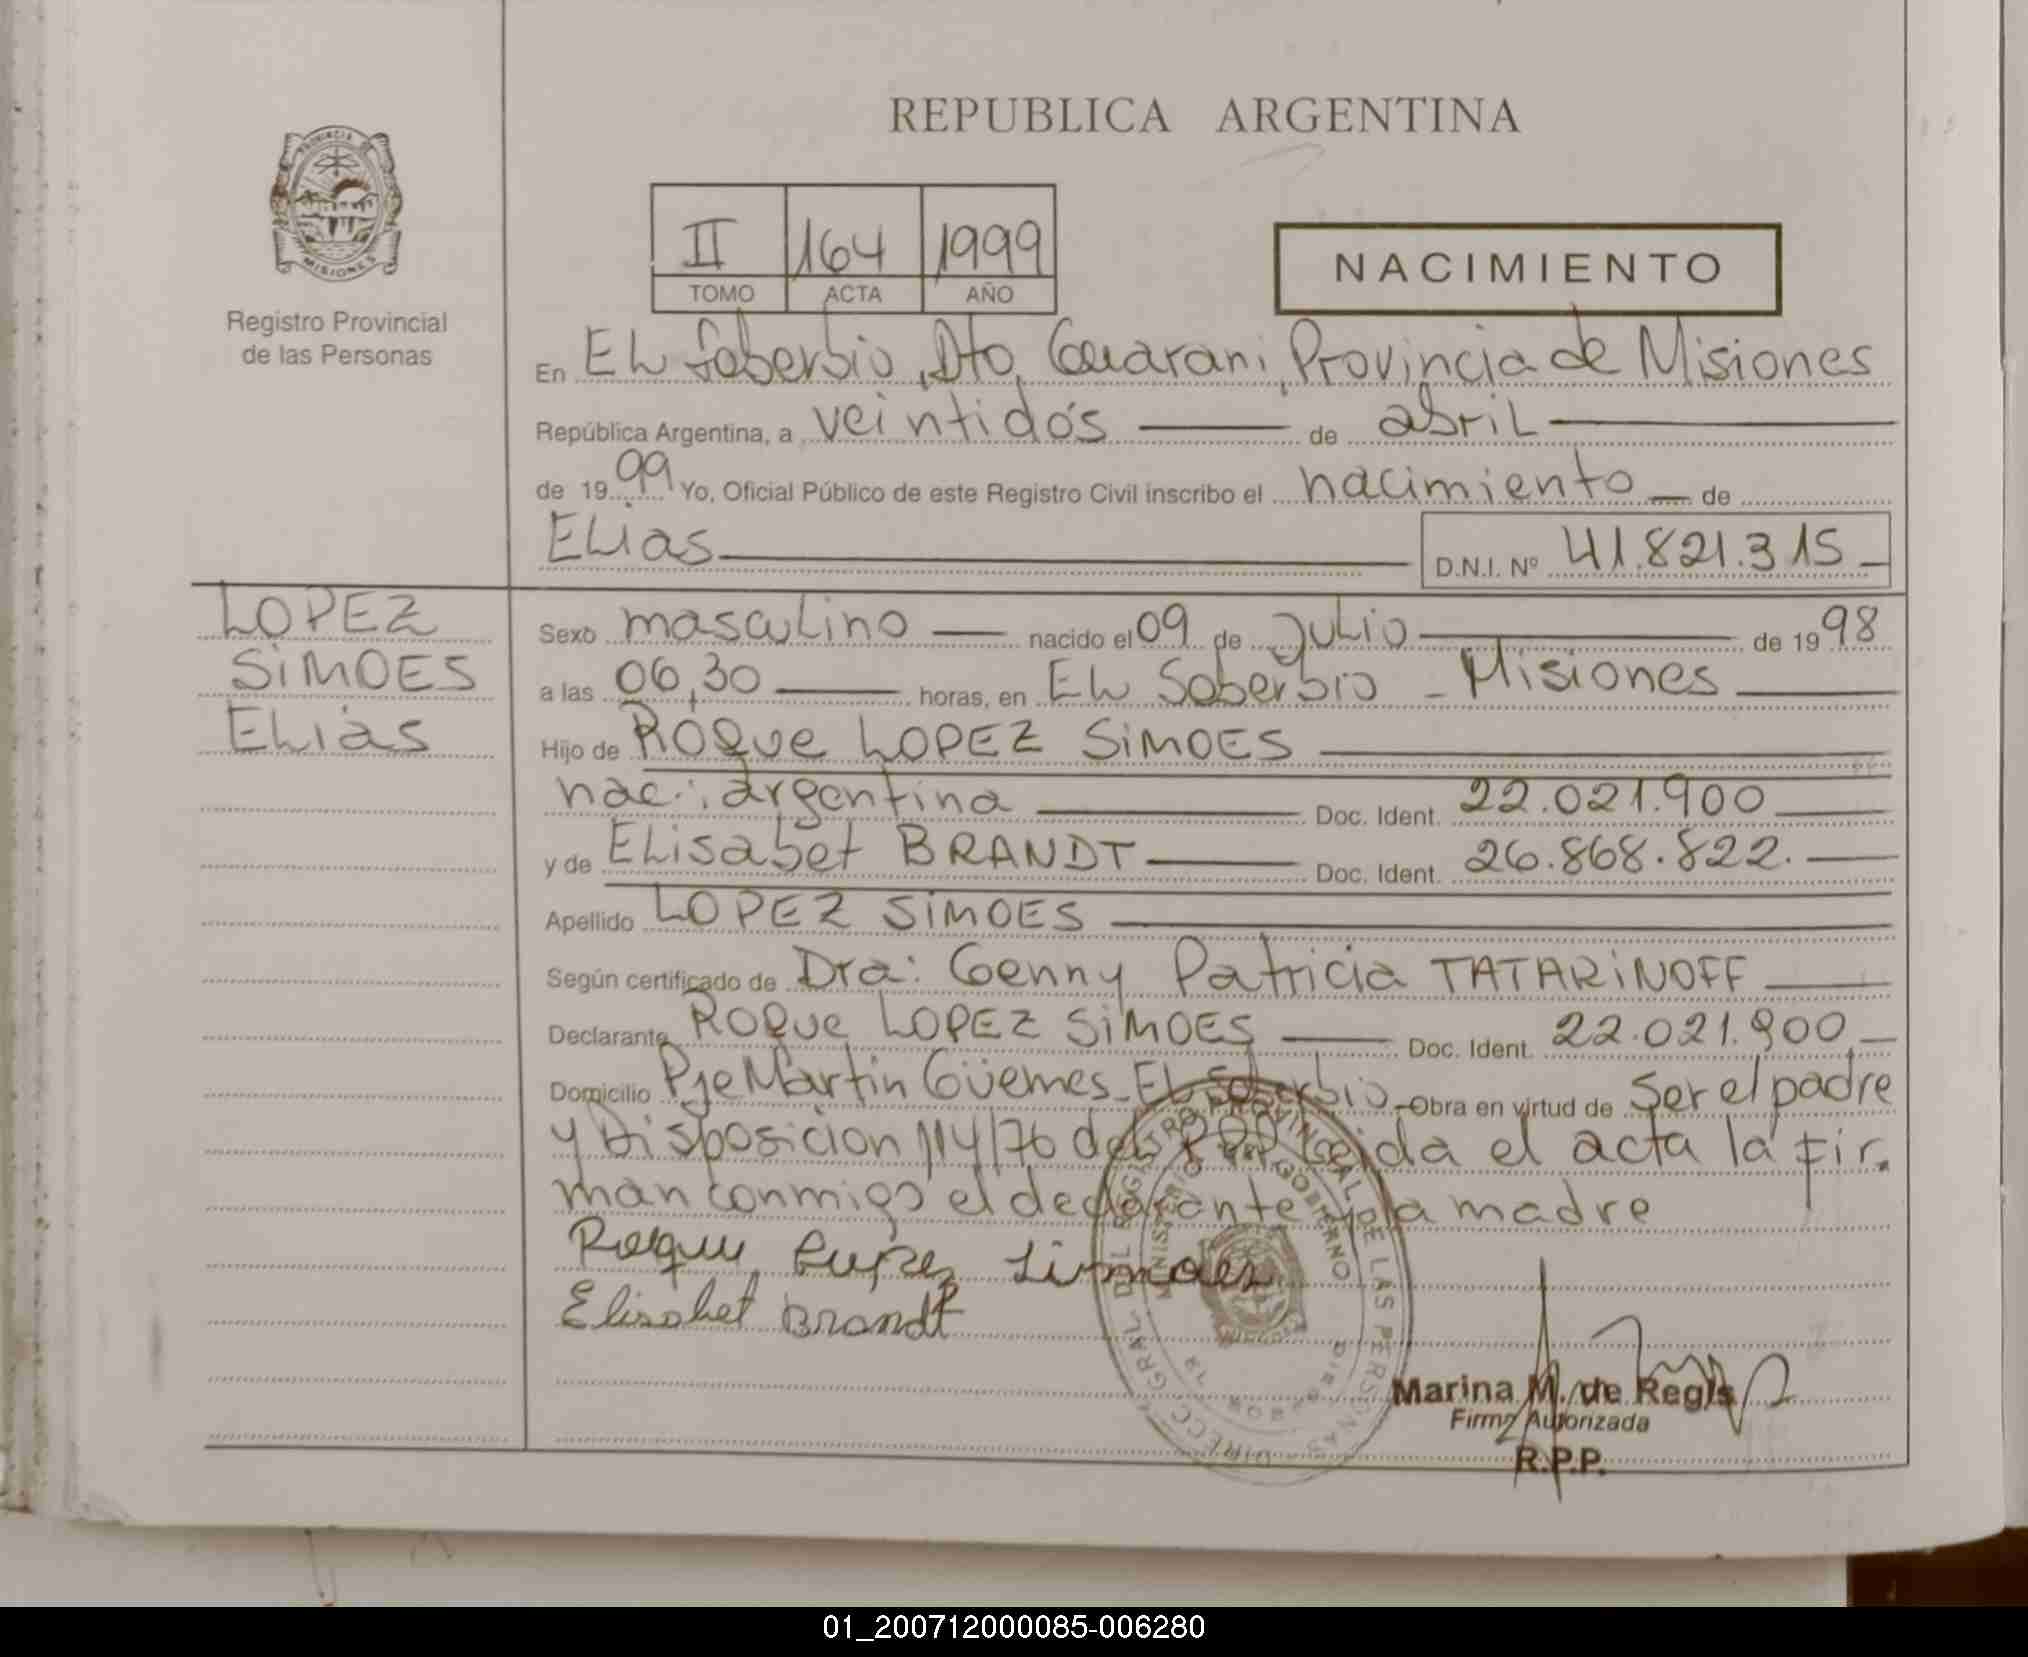 REPUBLICA ARGENTINA
PROVINCIA DE
MISIONES
Registro Provincial
de las Personas
II 164 1999
TOMO ACTA AÑO
NACIMIENTO
En EL Soberbio, Dto. Guarani, Provincia de Misiones
República Argentina, a veintidós de abril
de 1999 Yo, Oficial Público de este Registro Civil inscribo el nacimiento de
ELias D.N.I. Nº 41.821.315
LOPEZ
SiMOES
ELias
Sexo masculino nacido el 09 de Julio de 1998
a las 06,30 horas, en EL Soberbio - Misiones
Hijo de ROQUe LOPEZ SiMOES
nac.: argentina Doc. Ident. 22.021.900
y de ELisabet BRANDT Doc. Ident. 26.868.822.
Apellido LOPEZ SiMOES
Según certificado de Dra: Genny Patricia TATARiNOFF
Declarante ROQUe LOPEZ SiMOES Doc. Ident. 22.021.900
Domicilio Pje Martin Güemes - EL Soberbio - Obra en virtud de Ser el padre
y Disposición 114/76 del RPP Leida el acta la fir-
man conmigo el declarante y la madre
Roque Lopez Simoes
Elisabet Brandt
DIRECC. GRAL. DEL REGISTRO PROVINCIAL DE LAS PERSONAS
MINISTERIO DE GOBIERNO
Marina M. de Regis
Firma Autorizada
R.P.P.
01_200712000085-006280